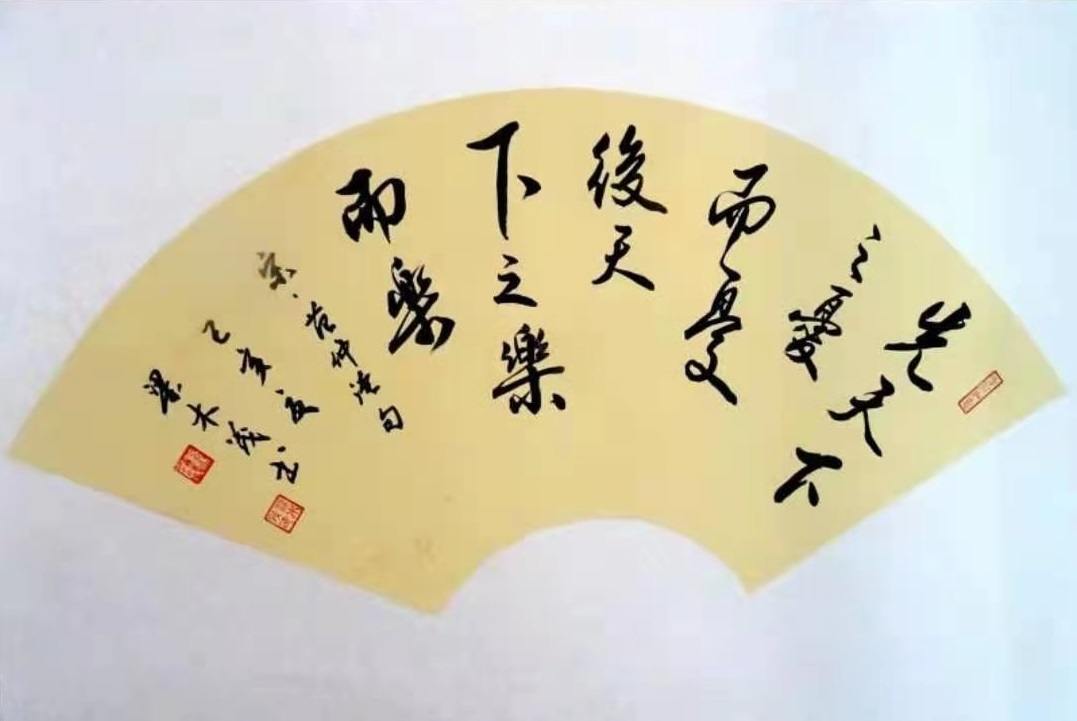 先天下
之憂
而憂
後天
下之樂
而樂
宋范仲淹句
乙亥夏
梁木茂書